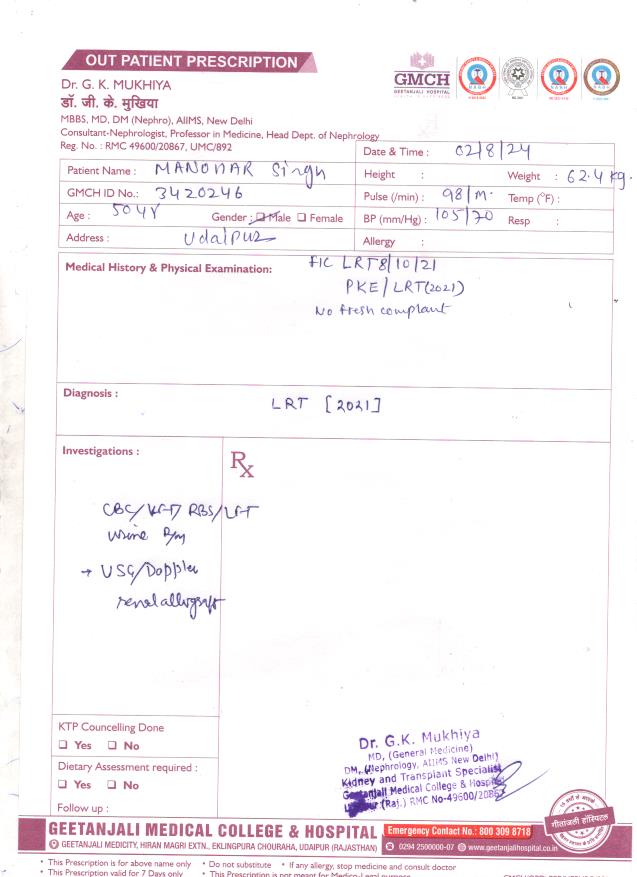 OUT PATIENT PRESCRIPTION
GMCH
GEETANJALI HOSPITAL
Dr. G. K. MUKHIYA
डॉ. जी. के. मुखिया
MBBS, MD, DM (Nephro), AIIMS, New Delhi
Consultant-Nephrologist, Professor in Medicine, Head Dept. of Nephrology
Reg. No. : RMC 49600/20867, UMC/892
Date & Time : 02/8/24
Patient Name : MANOHAR Singh
Height : Weight : 62.4 kg.
GMCH ID No.: 3420246
Pulse (/min) : 98/m. Temp (°F) :
Age : 50YY Gender : ❑ Male ❑ Female
BP (mm/Hg) : 105/70 Resp :
Address : Udaipur
Allergy :
Medical History & Physical Examination: F/C LRT 8/10/21
PKE/LRT(2021)
No fresh complant
Diagnosis : LRT [2021]
Investigations :
Rx
CBC/KFT/RBS/LFT
Urine R/m
→ USG/Doppler
renal allograft
KTP Councelling Done
❑ Yes ❑ No
Dietary Assessment required :
❑ Yes ❑ No
Follow up :
Dr. G.K. Mukhiya
MD, (General Medicine)
DM, (Nephrology, AIIMS New Delhi)
Kidney and Transplant Specialist
Geetanjali Medical College & Hospital
(Raj.) RMC No-49600/20867
GEETANJALI MEDICAL COLLEGE & HOSPITAL
Emergency Contact No.: 800 309 8718
गीतांजली हॉस्पिटल
GEETANJALI MEDICITY, HIRAN MAGRI EXTN., EKLINGPURA CHOURAHA, UDAIPUR (RAJASTHAN)
0294 2500000-07 www.geetanjalihospital.co.in
• This Prescription is for above name only • Do not substitute • If any allergy, stop medicine and consult doctor
• This Prescription valid for 7 Days only • This Prescription is not meant for Medico-Legal purpose